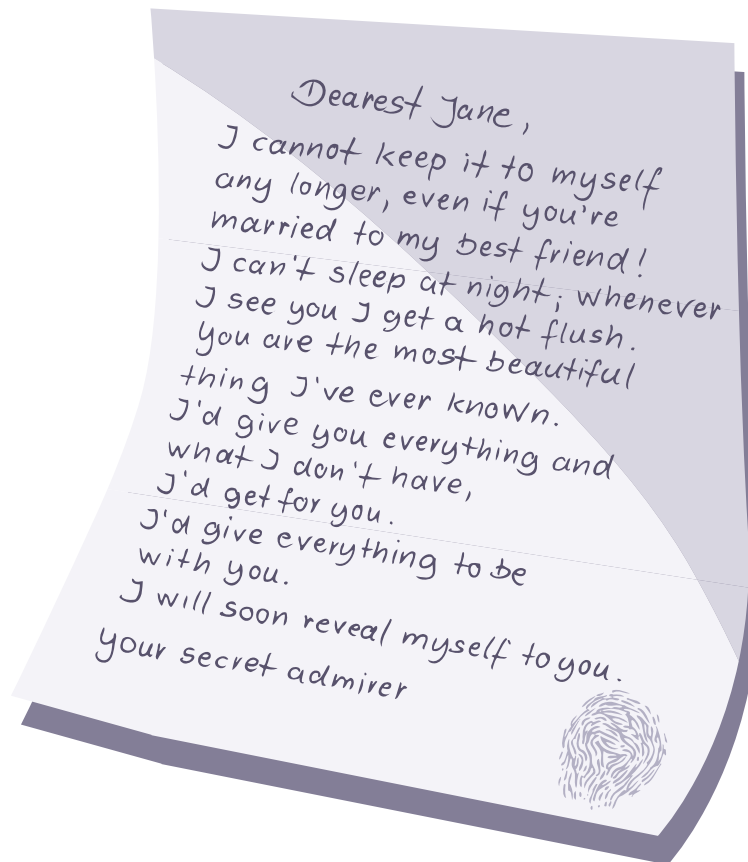 Dearest Jane,
I cannot keep it to myself
any longer, even if you're
married to my best friend!
I can't sleep at night; whenever
I see you I get a hot flush.
You are the most beautiful
thing I've ever known.
I'd give you everything and
what I don't have,
I'd get for you.
I'd give everything to be
with you.
I will soon reveal myself to you.
Your secret admirer